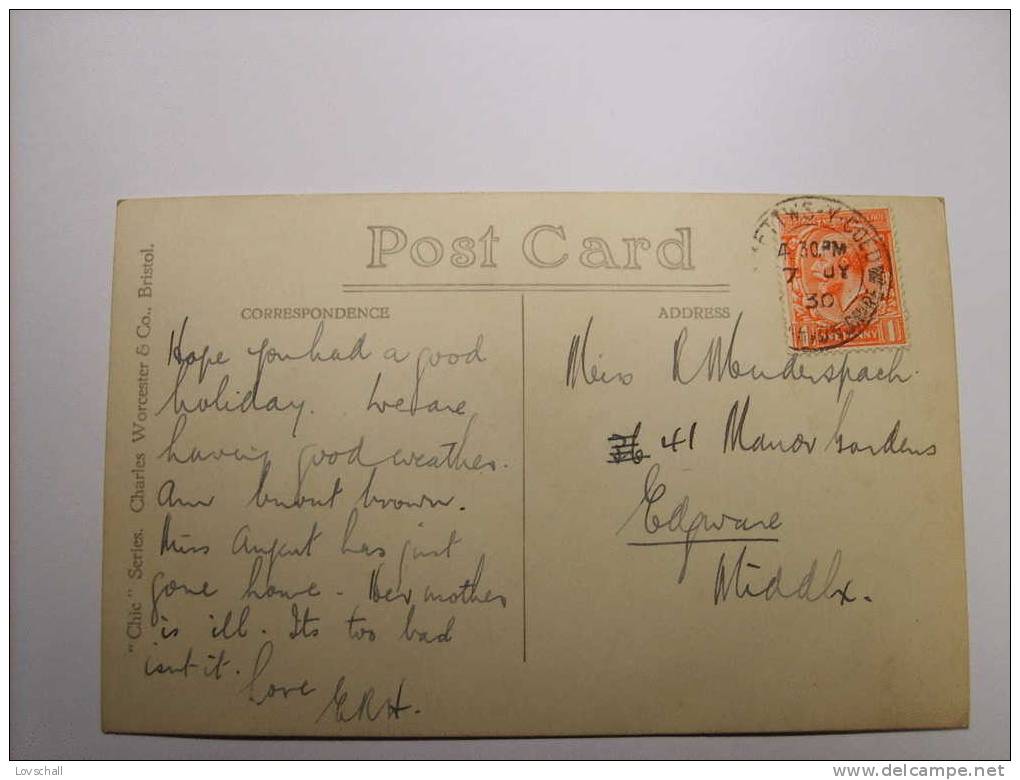 Post Card
CORRESPONDENCE
ADDRESS
"Chic" Series. Charles Worcester & Co., Bristol.
Hope you had a good
holiday. We are
having good weather.
Am burnt brown.
Miss August has just
gone home - Her mother
is ill. Its too bad
isnt it.
Love
ERH.
Miss R Menderspach.
41 Manor Gardens
Edgware
Middlx.
BETTWS-Y-COED
4.30PM
7 JY
30
Lovschall
delcampe.net